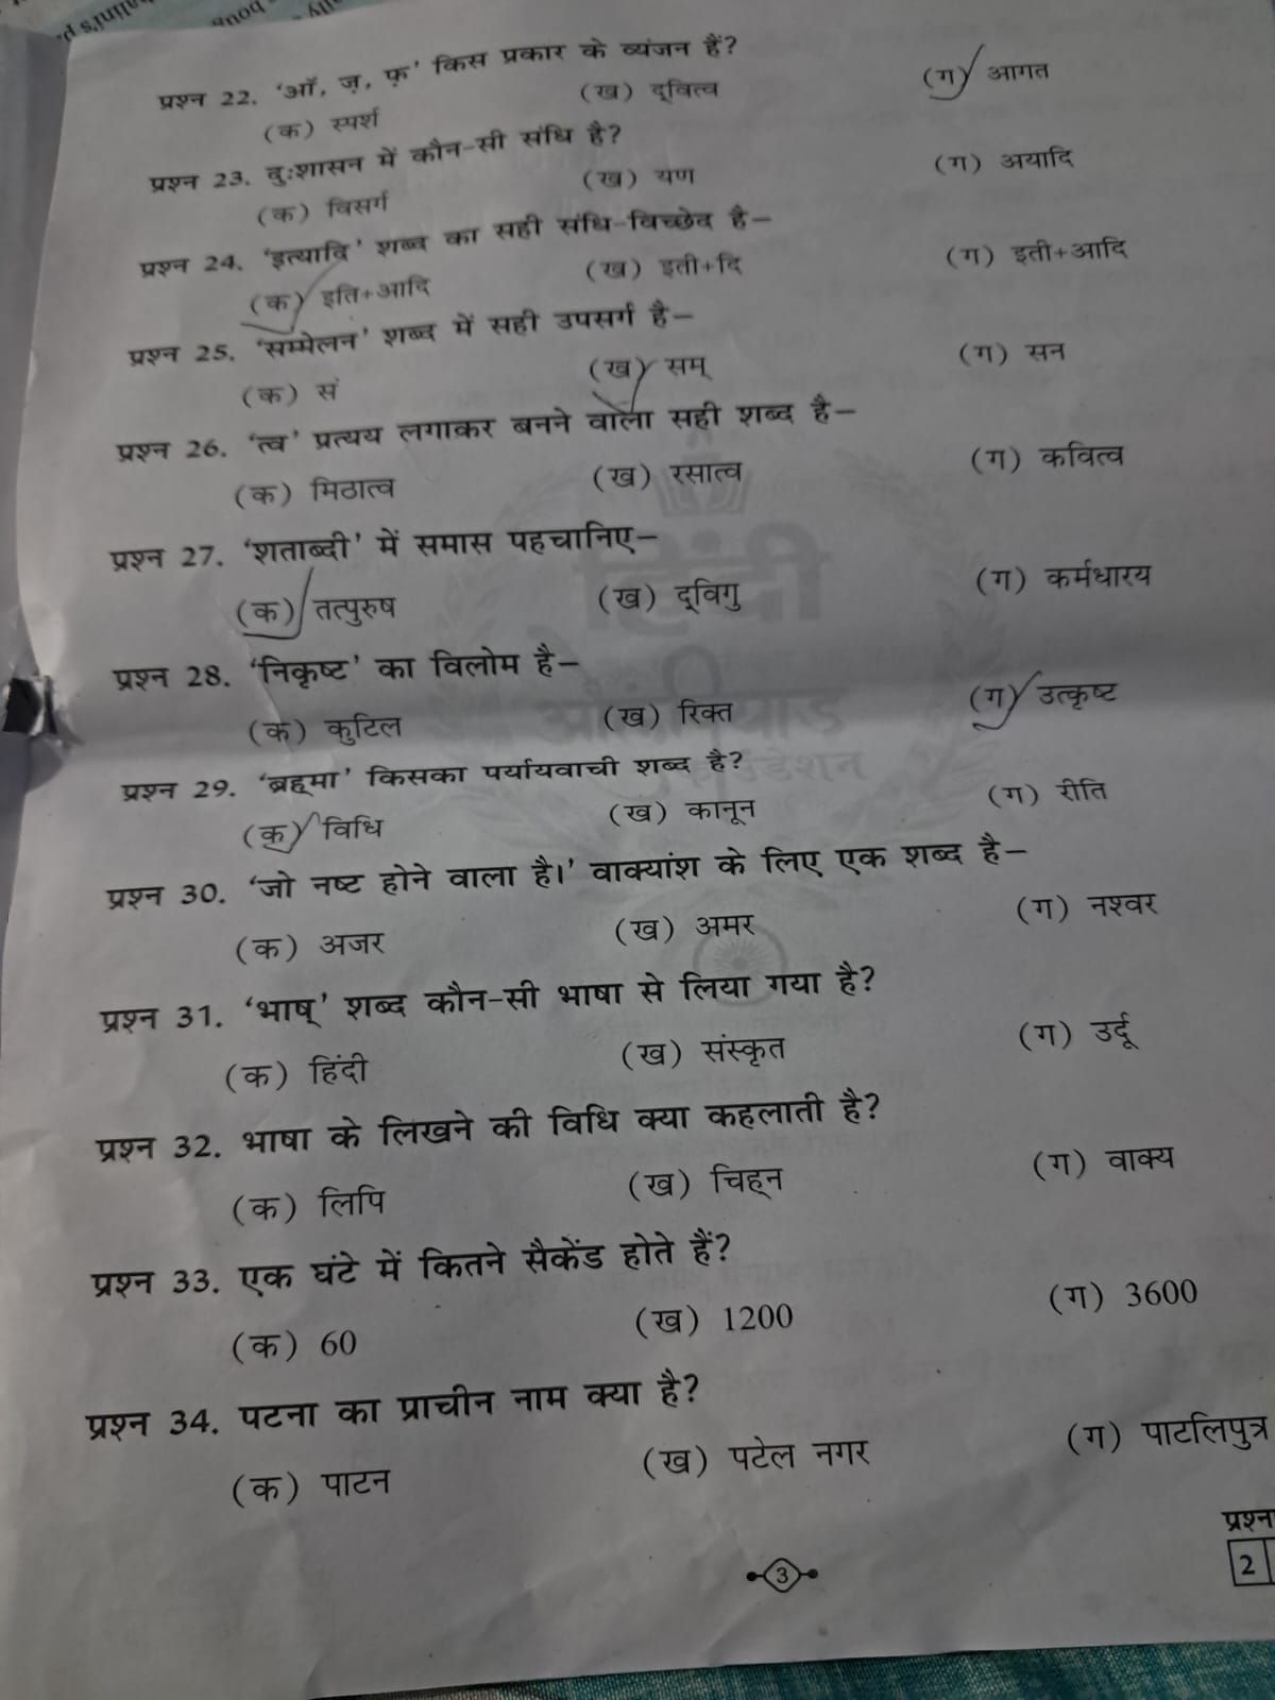 प्रश्न 22. 'ऑ, ज़, फ़' किस प्रकार के व्यंजन हैं?
(क) स्पर्श (ख) द्‌वित्व (ग) आगत
प्रश्न 23. दुःशासन में कौन-सी संधि है?
(क) विसर्ग (ख) यण (ग) अयादि
प्रश्न 24. 'इत्यादि' शब्द का सही संधि-विच्छेद है–
(क) इति+आदि (ख) इती+दि (ग) इती+आदि
प्रश्न 25. 'सम्मेलन' शब्द में सही उपसर्ग है–
(क) सं (ख) सम् (ग) सन
प्रश्न 26. 'त्व' प्रत्यय लगाकर बनने वाला सही शब्द है–
(क) मिठात्व (ख) रसात्व (ग) कवित्व
प्रश्न 27. 'शताब्दी' में समास पहचानिए–
(क) तत्पुरुष (ख) द्‌विगु (ग) कर्मधारय
प्रश्न 28. 'निकृष्ट' का विलोम है–
(क) कुटिल (ख) रिक्त (ग) उत्कृष्ट
प्रश्न 29. 'ब्रह्‌मा' किसका पर्यायवाची शब्द है?
(क) विधि (ख) कानून (ग) रीति
प्रश्न 30. 'जो नष्ट होने वाला है।' वाक्यांश के लिए एक शब्द है–
(क) अजर (ख) अमर (ग) नश्वर
प्रश्न 31. 'भाष्' शब्द कौन-सी भाषा से लिया गया है?
(क) हिंदी (ख) संस्कृत (ग) उर्दू
प्रश्न 32. भाषा के लिखने की विधि क्या कहलाती है?
(क) लिपि (ख) चिह्‌न (ग) वाक्य
प्रश्न 33. एक घंटे में कितने सैकेंड होते हैं?
(क) 60 (ख) 1200 (ग) 3600
प्रश्न 34. पटना का प्राचीन नाम क्या है?
(क) पाटन (ख) पटेल नगर (ग) पाटलिपुत्र
प्रश्न
2
3